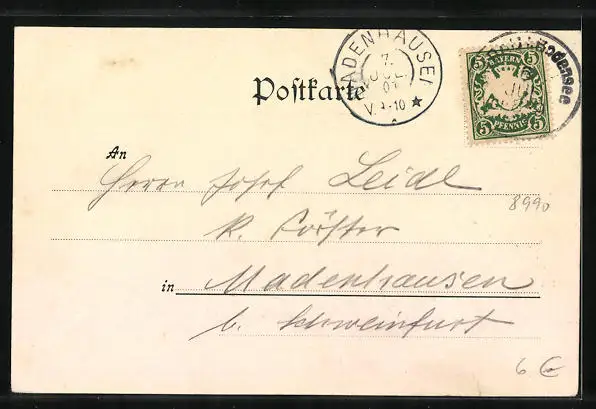 MADENHAUSEN
7.
JUL.
01
V. 9-10
Postkarte
BAYERN
5 5
PFENNIG
5 5
Bodensee
An
Herrn Josef Leidl
8990
k. Förster
in Madenhausen
b. Schweinfurt
6 €